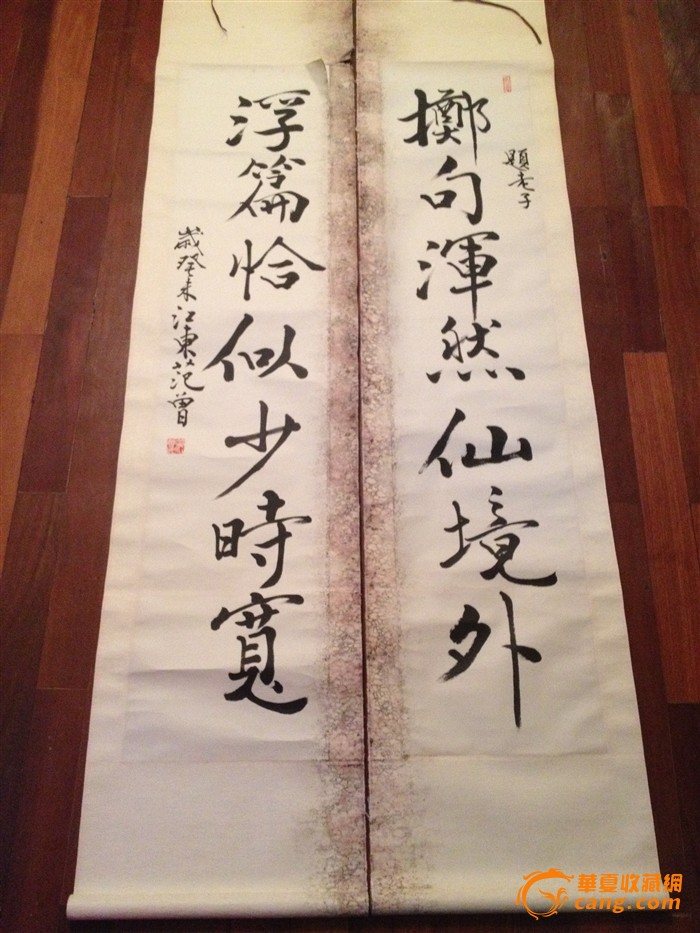 題老子
擲句渾然仙境外
浮篇恰似少時寬
歲癸未江東范曾
華夏收藏網
cang.com